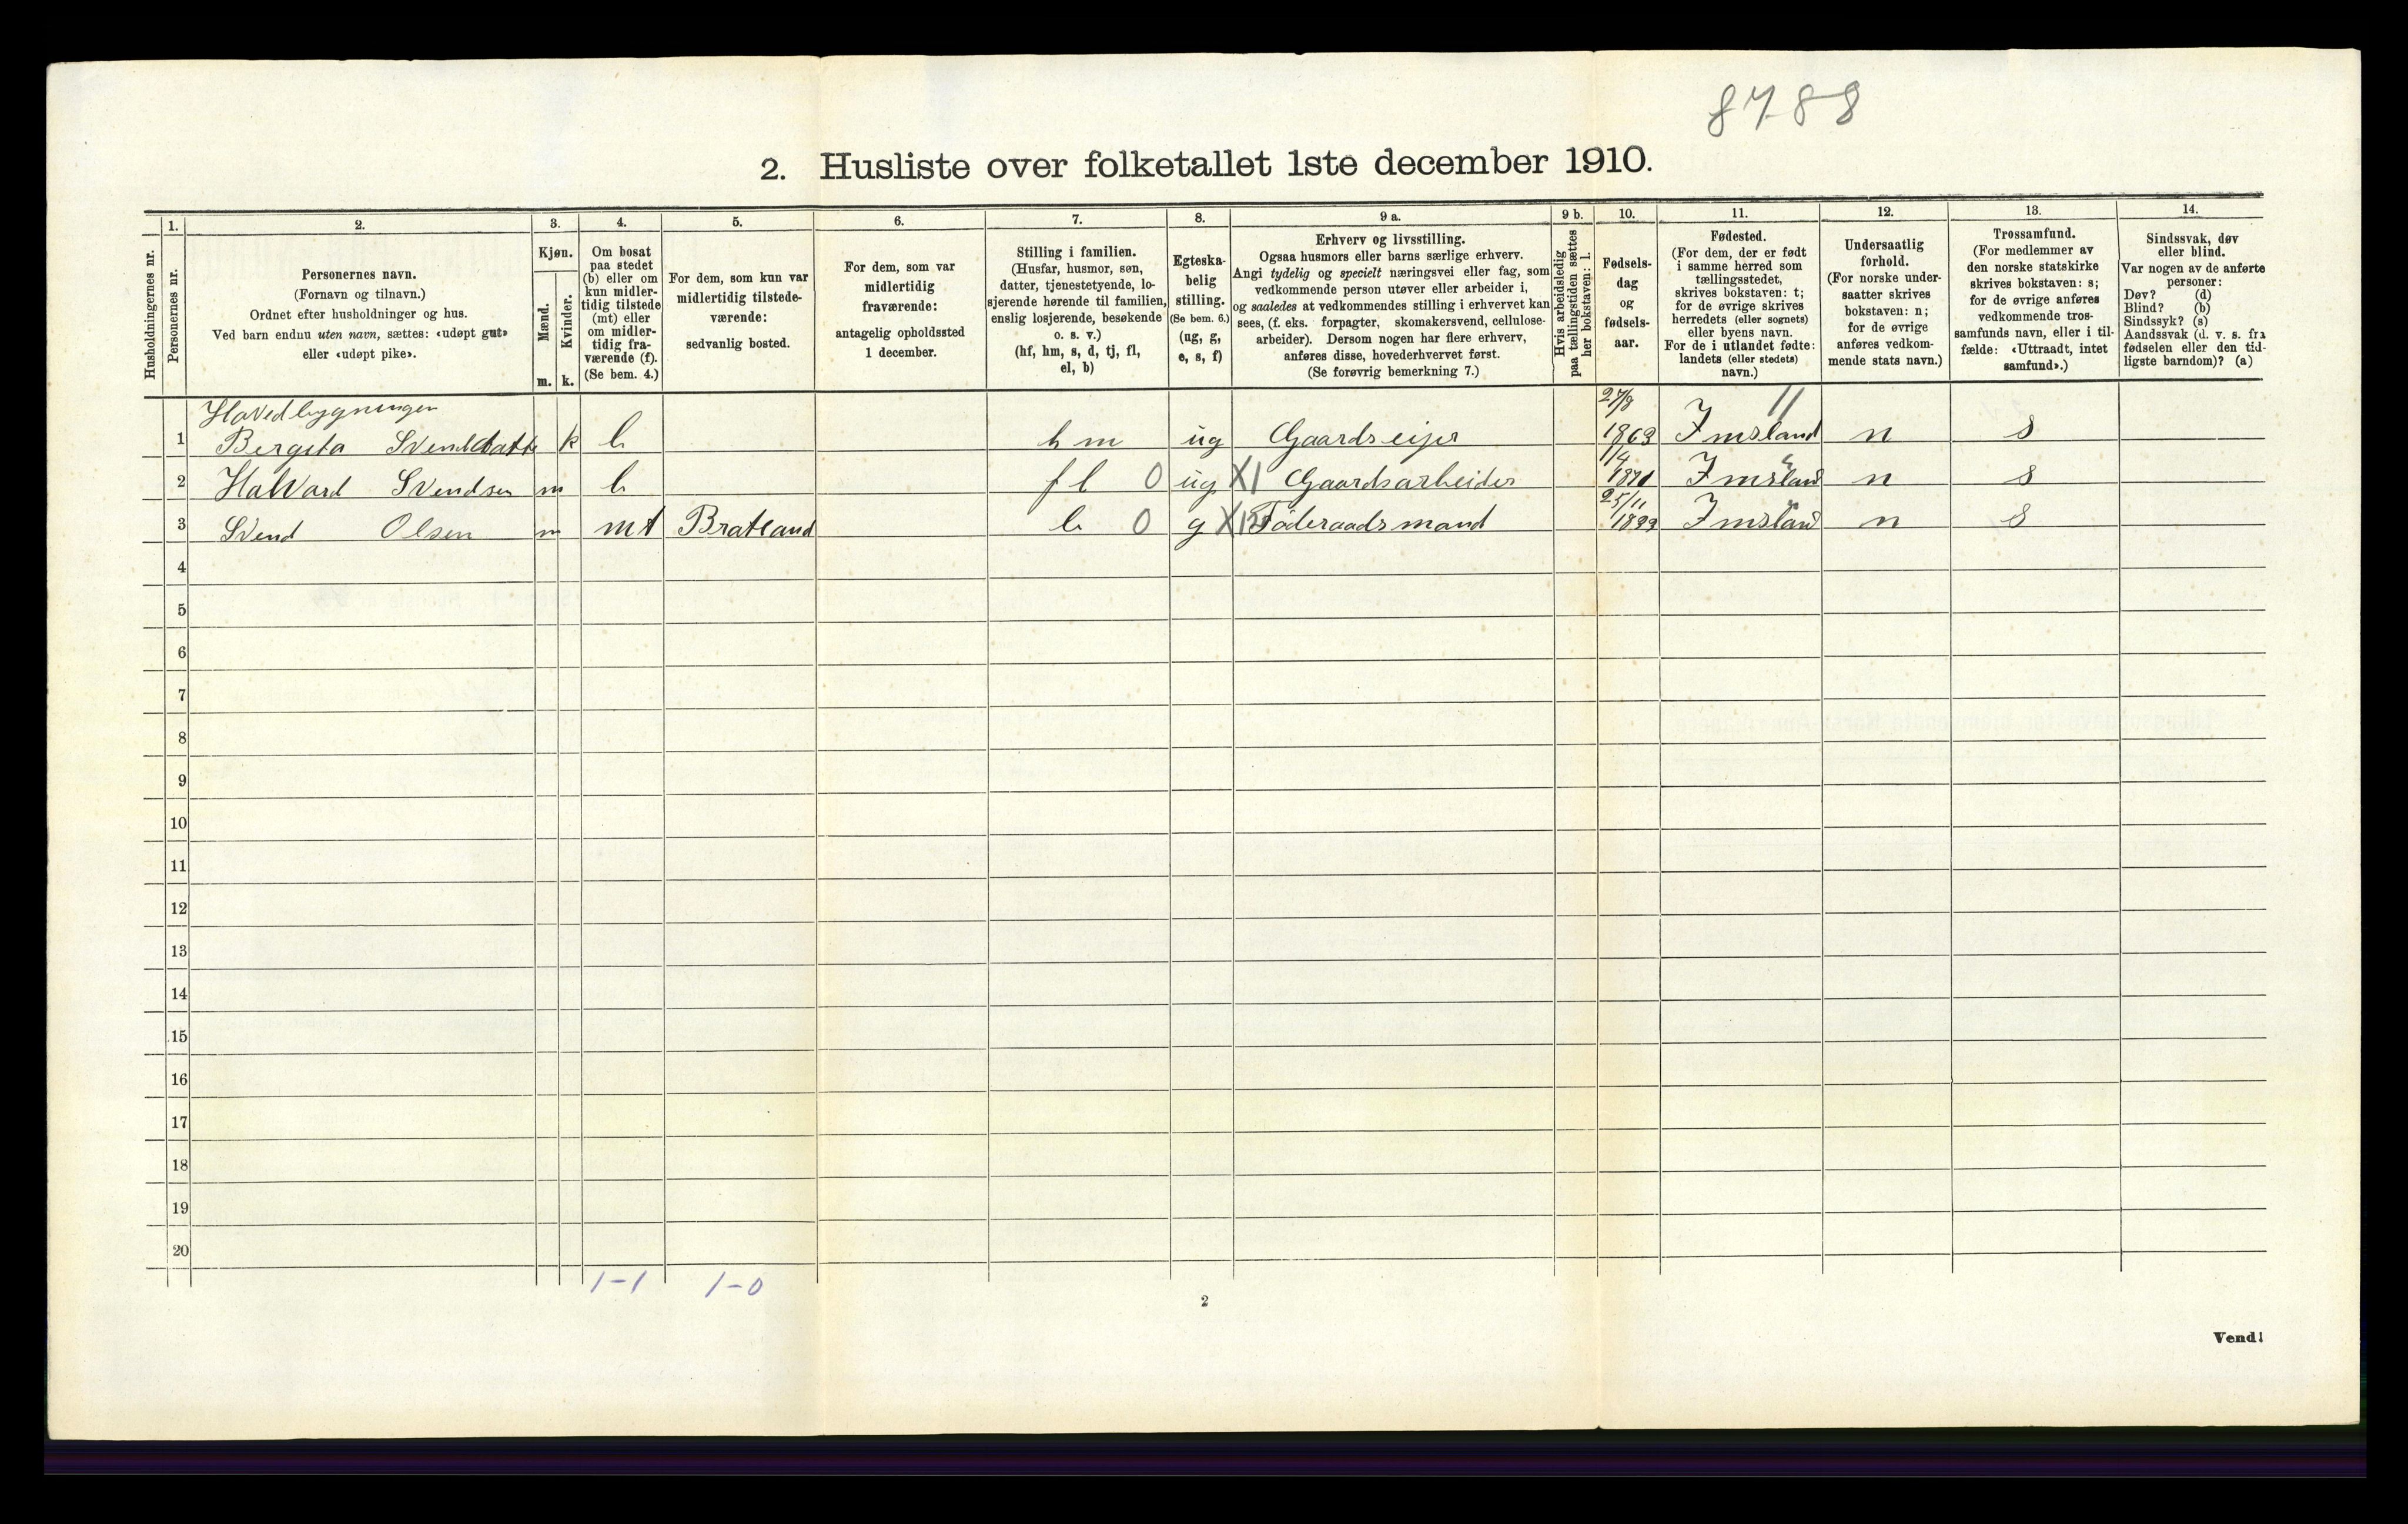 8788
2. Husliste over folketallet 1ste december 1910.
Husholdningernes nr.
1.
Personernes nr.
2.
Personernes navn.
(Fornavn og tilnavn.)
Ordnet efter husholdninger og hus.
Ved barn endnu uten navn, sættes: «udøpt gut»
eller «udøpt pike».
3.
Kjøn.
Mænd.
m.
Kvinder.
k.
4.
Om bosat
paa stedet
(b) eller om
kun midler-
tidig tilstede
(mt) eller
om midler-
tidig fra-
værende (f).
(Se bem. 4.)
5.
For dem, som kun var
midlertidig tilstede-
værende:
sedvanlig bosted.
6.
For dem, som var
midlertidig
fraværende:
antagelig opholdssted
1 december.
7.
Stilling i familien.
(Husfar, husmor, søn,
datter, tjenestetyende, lo-
sjerende hørende til familien,
enslig losjerende, besøkende
o. s. v.)
(hf, hm, s, d, tj, fl,
el, b)
8.
Egteska-
belig
stilling.
(Se bem. 6.)
(ug, g,
e, s, f)
9 a.
Erhverv og livsstilling.
Ogsaa husmors eller barns særlige erhverv.
Angi tydelig og specielt næringsvei eller fag, som
vedkommende person utøver eller arbeider i,
og saaledes at vedkommendes stilling i erhvervet kan
sees, (f. eks. forpagter, skomakersvend, cellulose-
arbeider). Dersom nogen har flere erhverv,
anføres disse, hovederhvervet først.
(Se forøvrig bemerkning 7.)
9 b.
Hvis arbeidsledig
paa tællingstiden sættes
her bokstaven: l.
10.
Fødsels-
dag
og
fødsels-
aar.
11.
Fødested.
(For dem, der er født
i samme herred som
tællingsstedet,
skrives bokstaven: t;
for de øvrige skrives
herredets (eller sognets)
eller byens navn.
For de i utlandet fødte:
landets (eller stedets)
navn.)
12.
Undersaatlig
forhold.
(For norske under-
saatter skrives
bokstaven: n;
for de øvrige
anføres vedkom-
mende stats navn.)
13.
Trossamfund.
(For medlemmer av
den norske statskirke
skrives bokstaven: s;
for de øvrige anføres
vedkommende tros-
samfunds navn, eller i til-
fælde: «Uttraadt, intet
samfund».)
14.
Sindssvak, døv
eller blind.
Var nogen av de anførte
personer:
Døv? (d)
Blind? (b)
Sindssyk? (s)
Aandssvak (d. v. s. fra
fødselen eller den tid-
ligste barndom)? (a)
Hovedbygningen
1 Bergita k b hm ug Gaardseijer 1863 Imsland n s
2 Halvard Svendsen m b fl 0 ug X1 Gaardsarbeider 1/4 1871 Imsland n s
3 Svend Olsen m mt Bratland b 0 g Föderaadsmand 25/11 Imsland n s
4
5
6
7
8
9
10
11
12
13
14
15
16
17
18
19
20
1-1 1-0
2
Vend!